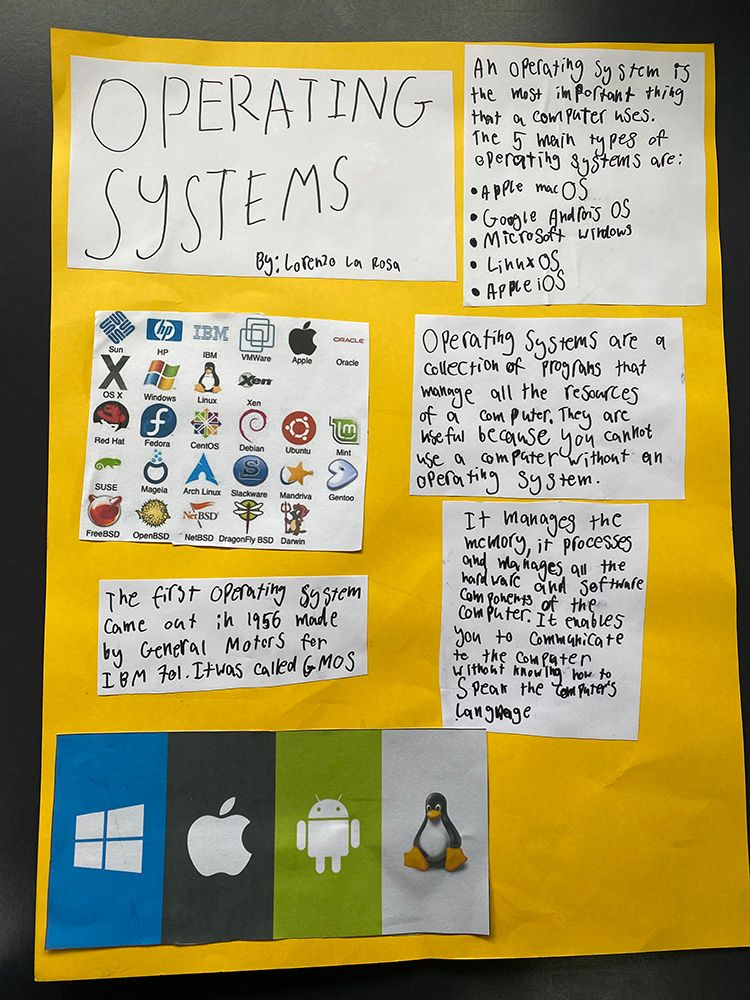 OPERATING
SYSTEMS
By: Lorenzo La Rosa
An Operating System is
the most important thing
that a computer uses.
The 5 main types of
operating systems are:
• Apple mac OS
• Google Androis OS
• Microsoft windows
• Linux OS
• Apple iOS
Sun HP IBM VMWare Apple Oracle
hp IBM ORACLE
OS X Windows Linux Xen
Xen
Red Hat Fedora CentOS Debian Ubuntu Mint
SUSE Mageia Arch Linux Slackware Mandriva Gentoo
NetBSD
FreeBSD OpenBSD NetBSD DragonFly BSD Darwin
Operating Systems are a
collection of programs that
manage all the resources
of a computer. They are
useful because you cannot
use a computer without an
operating system.
It manages the
memory, it processes
and manages all the
hardware and software
components of the
computer. It enables
you to communicate
to the computer
without knowing how to
Speak the computer's
language
The first operating system
came out in 1956 made
by General Motors for
IBM 701. It was called GMOS